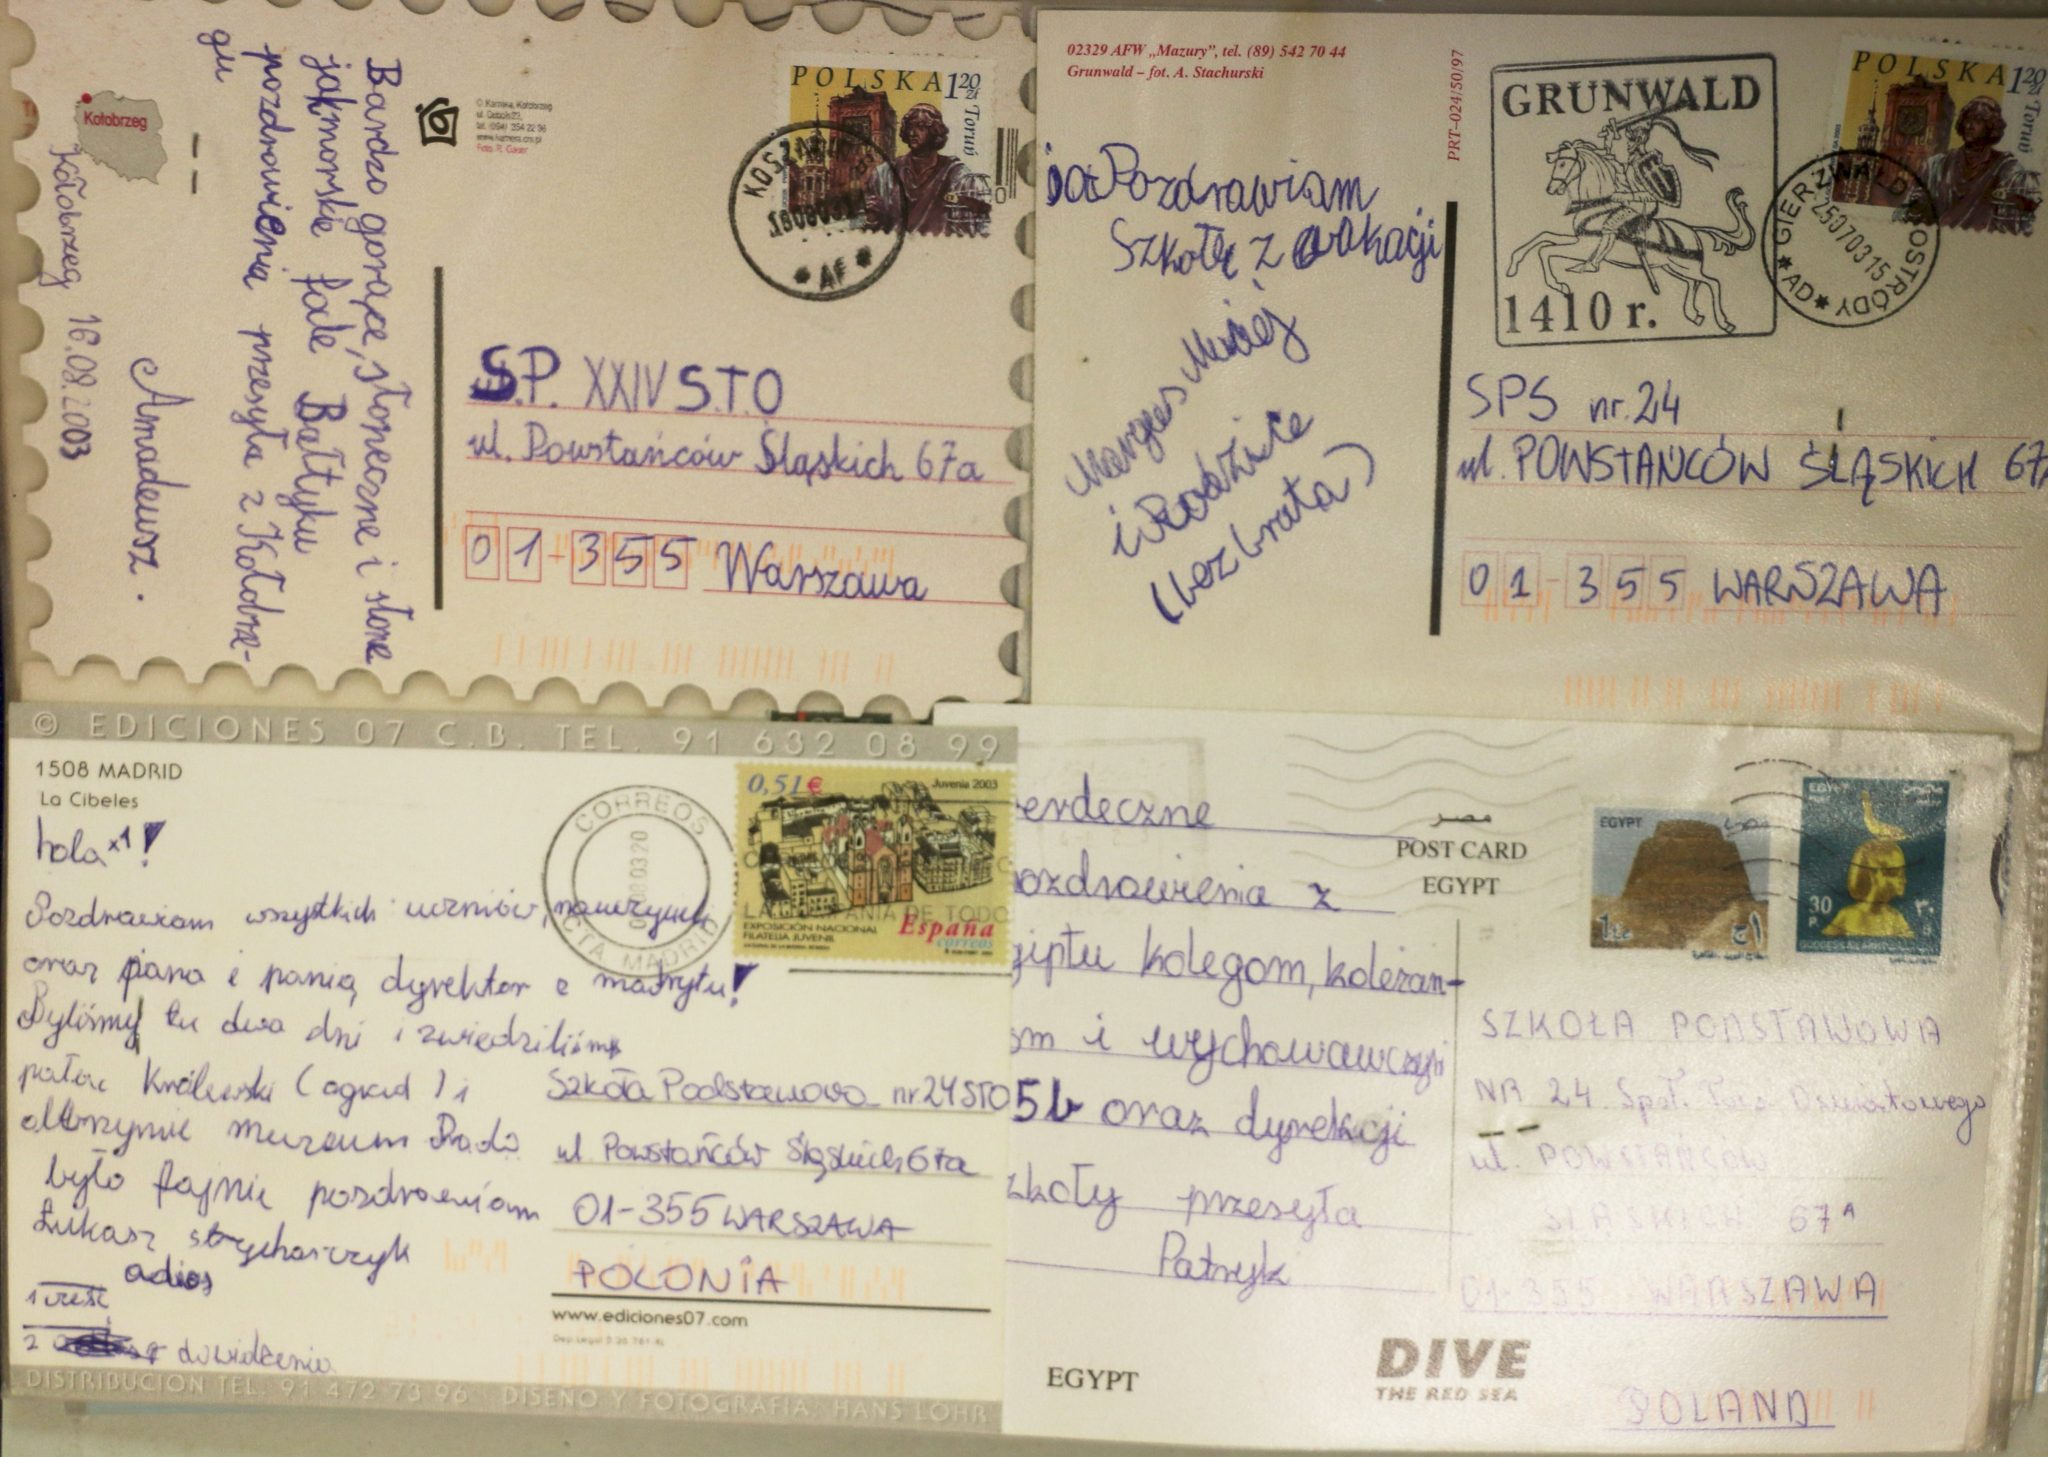 Kołobrzeg
Kołobrzeg 16.08.2003
Bardzo gorące, słoneczne i słone
jak morskie fale Bałtyku
pozdrowienia przesyła z Kołobrze-
gu
Amadeusz.
© Kamera, Kołobrzeg
tel. (094) 354 22 96
POLSKA 120 zł
Toruń
KOSZALIN
* AF *
S.P. XXIV S.T.O
ul. Powstańców Śląskich 67a
01-355 Warszawa
02329 AFW „Mazury”, tel. (89) 542 70 44
Grunwald – fot. A. Stachurski
PRT–024/50/97
Pozdrawiam
Szkołę z wakacji
Maciej
i Rodzice
(bez brata)
GRUNWALD
1410 r.
POLSKA 120 zł
Toruń
GIERZWAŁD OSTRÓDY
* AD *
250703 15
SPS nr. 24
ul. POWSTAŃCÓW ŚLĄSKICH 67
01-355 WARSZAWA
© EDICIONES 07 C.B. TEL. 91 632 08 99
1508 MADRID
La Cibeles
hola*1!
Pozdrawiam wszystkich uczniów, nauczycieli
oraz pana i panią dyrektor z madrytu!
Byliśmy tu dwa dni i zwiedziliśmy
pałac Królewski (ogród) i
olbrzymie muzeum Prado
było fajnie pozdrawiam
Łukasz strycharczyk
adios
1 cześć
2 dowidzenia
CORREOS
CTA MADRID
0,51€
Juvenia 2003
EXPOSICIÓN NACIONAL
FILATELIA JUVENIL
España
correos
Szkoła Podstawowa nr 24 STO
ul Powstańców śląskich 67a
01-355 WARSZAWA
POLONIA
www.ediciones07.com
DISTRIBUCION TEL. 91 472 73 96 DISEÑO Y FOTOGRAFIA: HANS LOHR
erdeczne
ozdrowienia z
giptu kolegom, koleżan-
om i wychowawczyni
5b oraz dyrekcji
zkoły przesyła
Patryk
مصر
POST CARD
EGYPT
EGYPT
مصر
EGYPT
30 P
SZKOŁA PODSTAWOWA
NR 24 Społ. Tow. Oświatowego
ul. POWSTAŃCÓW
ŚLĄSKICH 67A
01-355 WARSZAWA
POLAND
EGYPT
DIVE
THE RED SEA